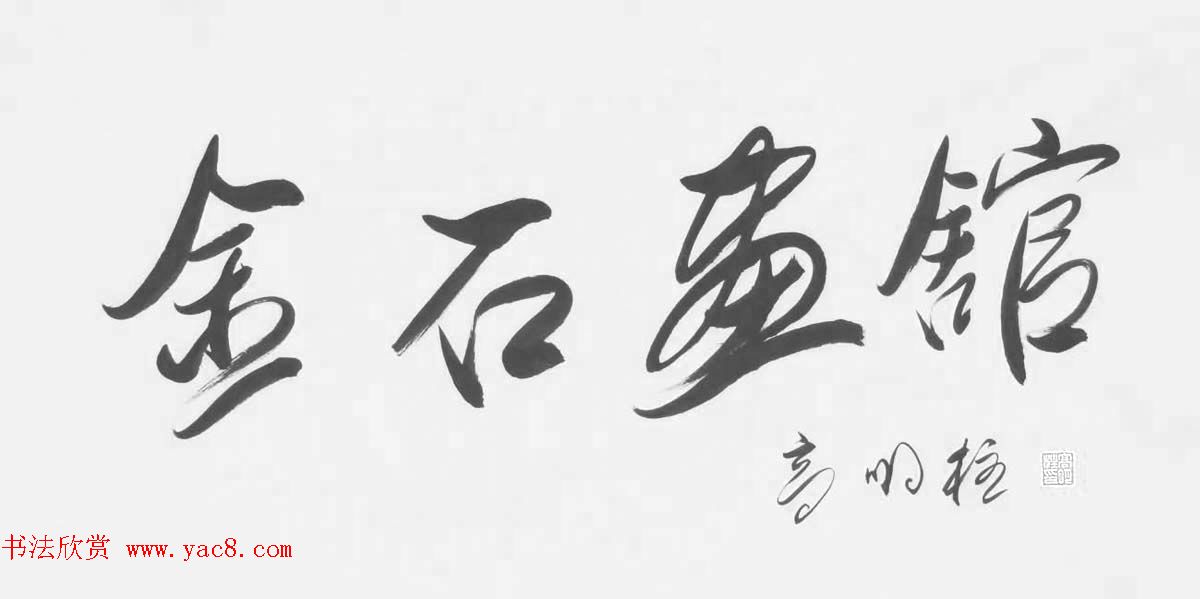 金石畫館
高明柱
书法欣赏 www.yac8.com